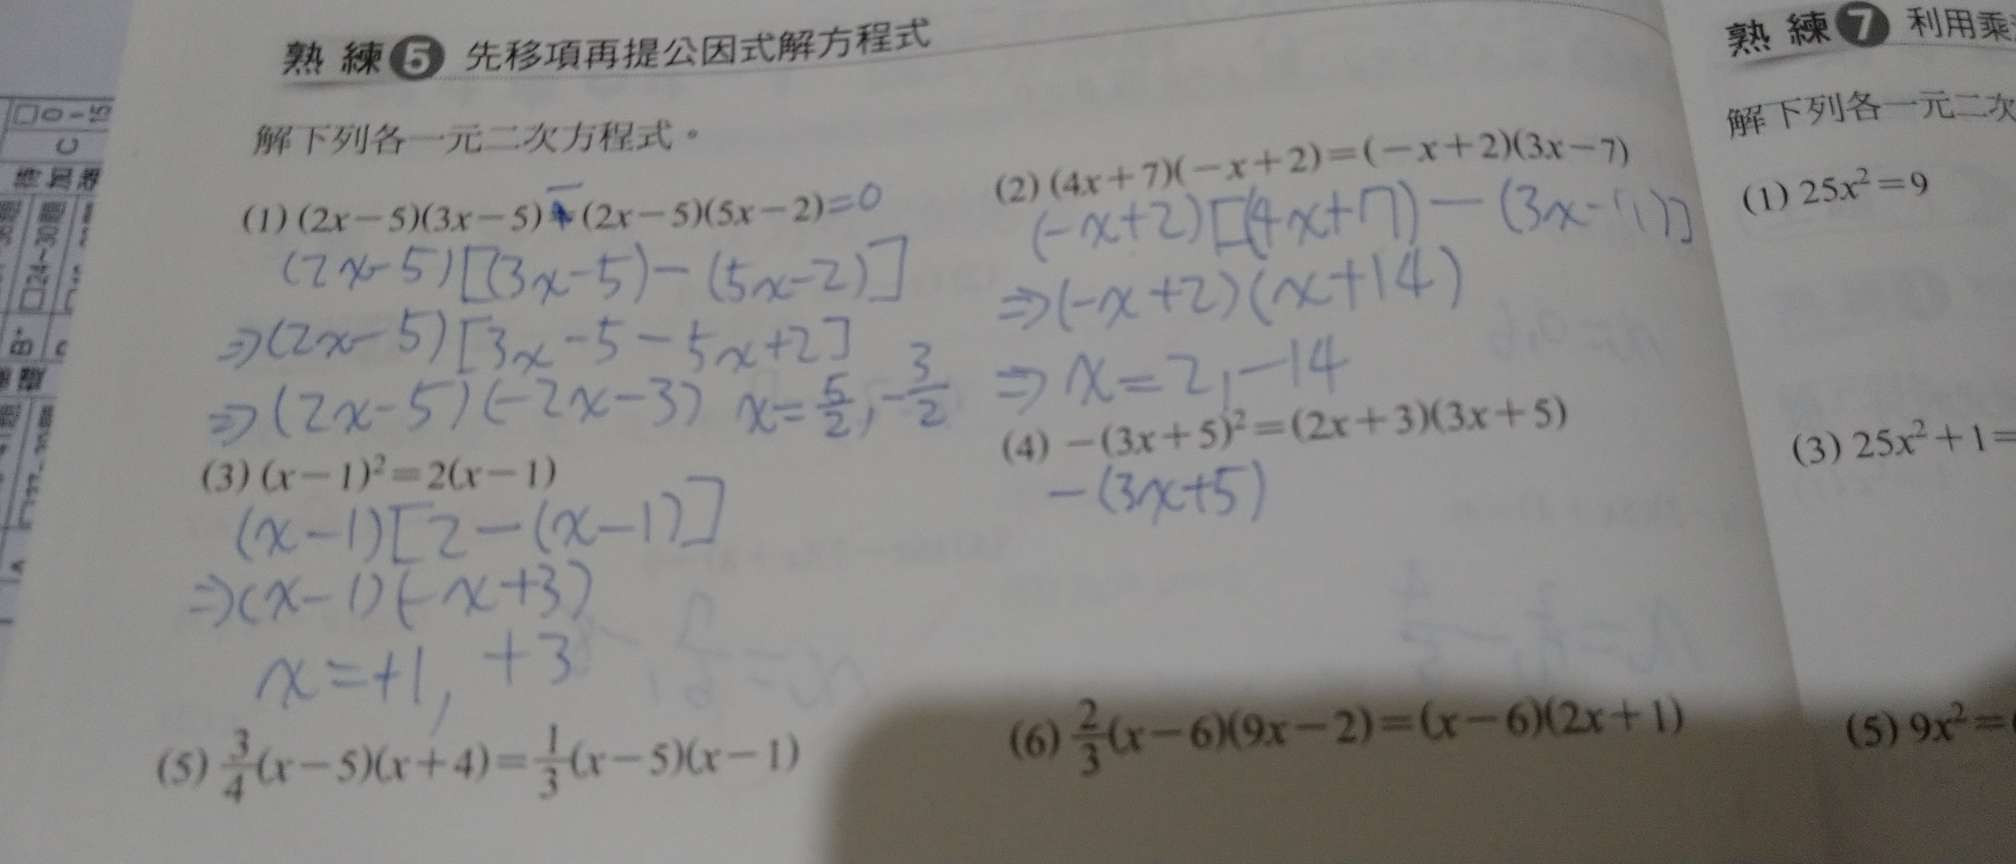 熟 練 5 先移項再提公因式解方程式
解下列各一元二次方程式。
(1) (2x－5)(3x－5)－(2x－5)(5x－2)=0
(2x-5)[(3x-5)-(5x-2)]
⇒(2x-5)[3x-5-5x+2]
⇒(2x-5)(-2x-3) x=5/2,-3/2
(2) (4x＋7)(－x＋2)＝(－x＋2)(3x－7)
(-x+2)[(4x+7)-(3x-7)]
⇒(-x+2)(x+14)
⇒ x=2,-14
(3) (x－1)²＝2(x－1)
(x-1)[2-(x-1)]
⇒(x-1)(-x+3)
x=+1, +3
(4) －(3x＋5)²＝(2x＋3)(3x＋5)
-(3x+5)
(5) 3/4(x－5)(x＋4)＝1/3(x－5)(x－1)
(6) 2/3(x－6)(9x－2)＝(x－6)(2x＋1)
熟 練 7 利用乘
解下列各一元二次
(1) 25x²＝9
(3) 25x²＋1＝
(5) 9x²＝